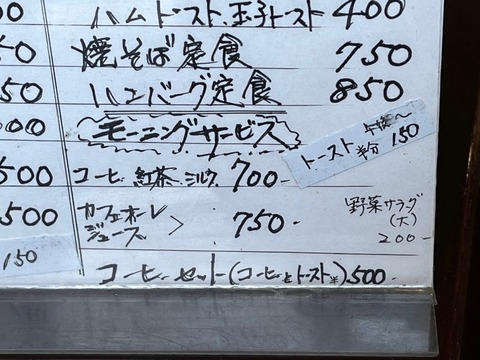 ハムトースト、玉子トースト 400
焼そば定食 750
ハンバーグ定食 850
モーニングサービス
トースト 半分 150
コーヒ 紅茶 ミルク 700
カフェオーレ
ジュース > 750
野菜サラダ
(大)
200
コーヒーセット(コーヒとトースト半) 500
50
500
500
150